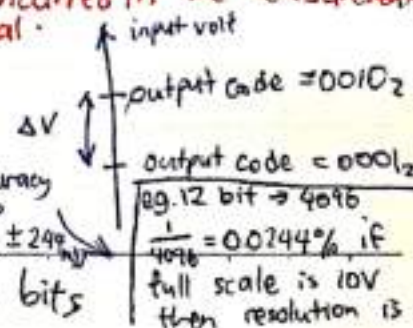 al.
input volt
output code = 0010₂
ΔV
output code = 0001₂
eg. 12 bit → 4096
±244
1/4096 = 0.0244% if
full scale is 10V
bits
then resolution is